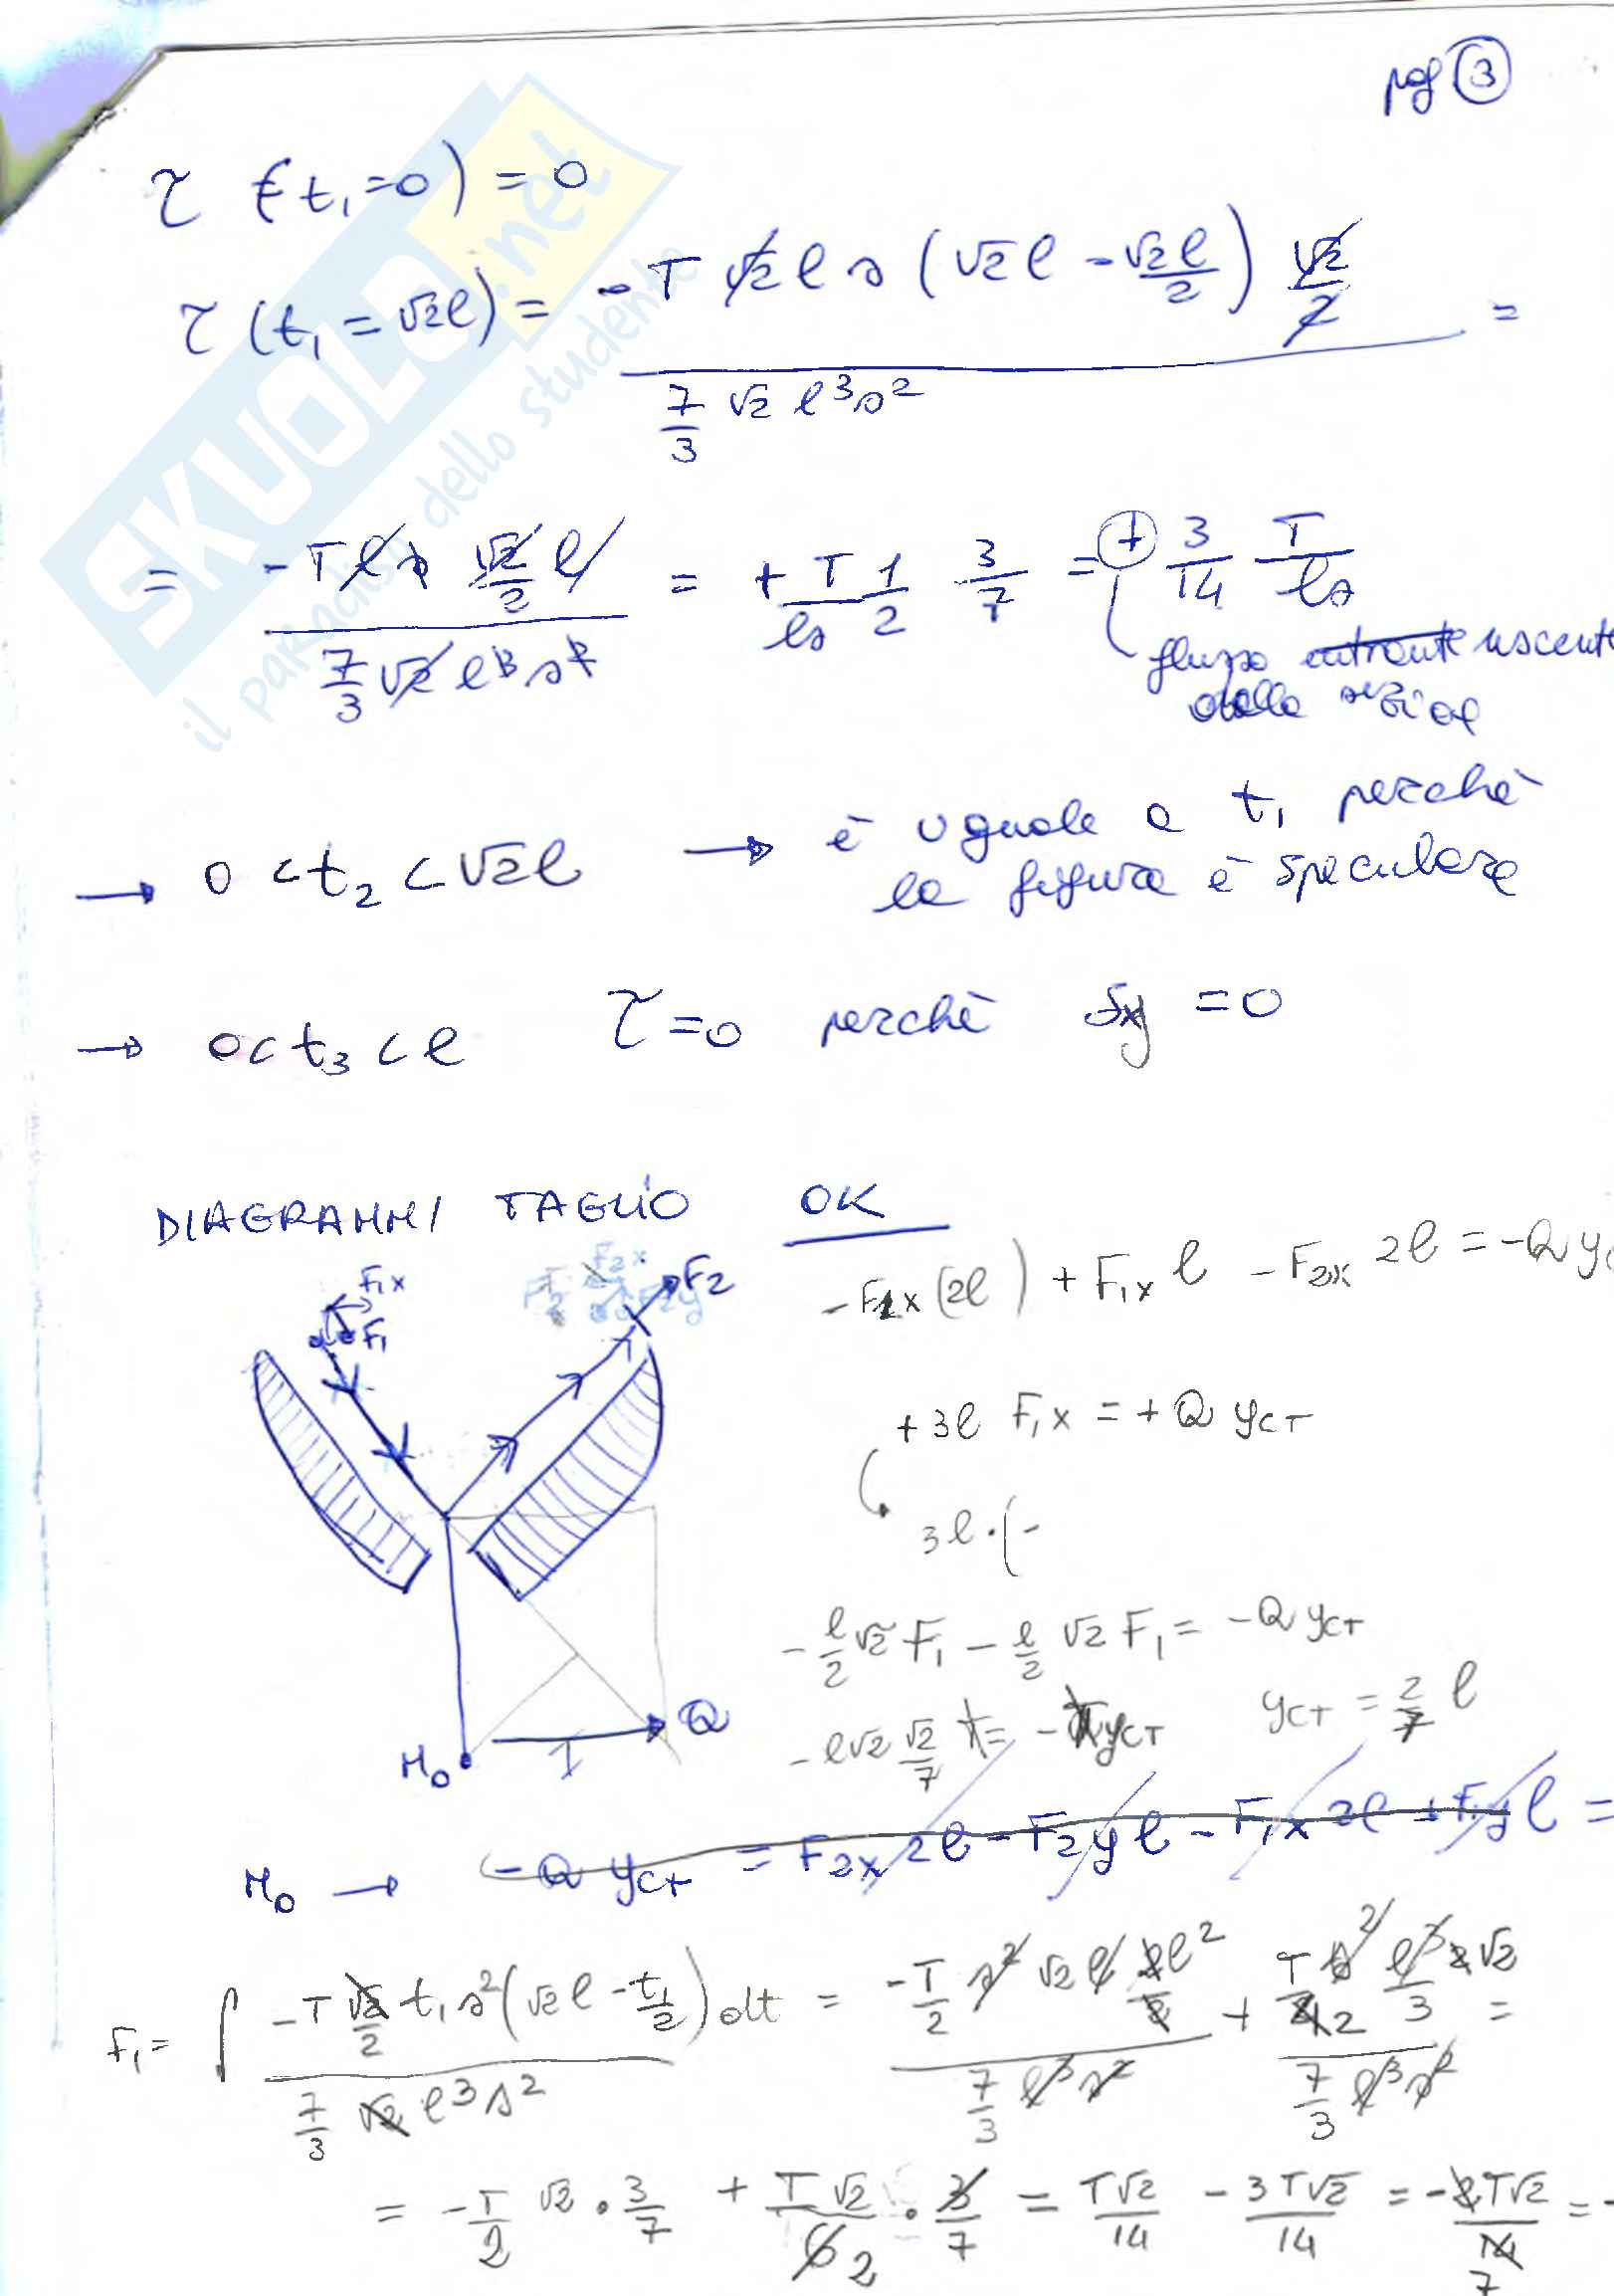 pag ③
τ (t₁=0) = 0
τ (t₁ = √2l) = -T √2 l s (√2 l - √2 l/2) √2/2 / (7/3 √2 l³s²) =
= -T l s √2/2 l / (7/3 √2 l³ s²) = + T/ls 1/2 3/7 = ⊕ 3/14 T/ls
flusso entrante uscente
dalla
→ 0 < t₂ < √2l → è uguale a t₁ perchè
la figura è speculare
→ 0 < t₃ < l τ = 0 perchè Sx = 0
DIAGRAMMI TAGLIO OK
F₁x F₂x F₂
F₁ F₂y
-F₁x (2l) + F₁x l - F₂x 2l = -Q y
+3l F₁x = +Q yCT
3l · (-
-l/2 √2 F₁ - l/2 √2 F₁ = -Q yCT
-l√2 √2/7 T = -T yCT yCT = 2/7 l
Q
M₀
M₀ → -Q yCT = F₂x 2l - F₂y l - F₁x 2l + F₁y l =
F₁ = ∫ -T √2/2 t₁ s² (√2 l - t₁/2) / (7/3 √2 l³ s²) dt = -T/2 s² √2 l 2l²/2 / (7/3 l³ s²) + T/2 s²/2 l³/3 2√2 / (7/3 l³ s²) =
= -T/2 √2 · 3/7 + T√2/6 2 · 3/7 = T√2/14 - 3T√2/14 = -2T√2/14 7 = -
SKUOLA.net
il paradiso dello studente